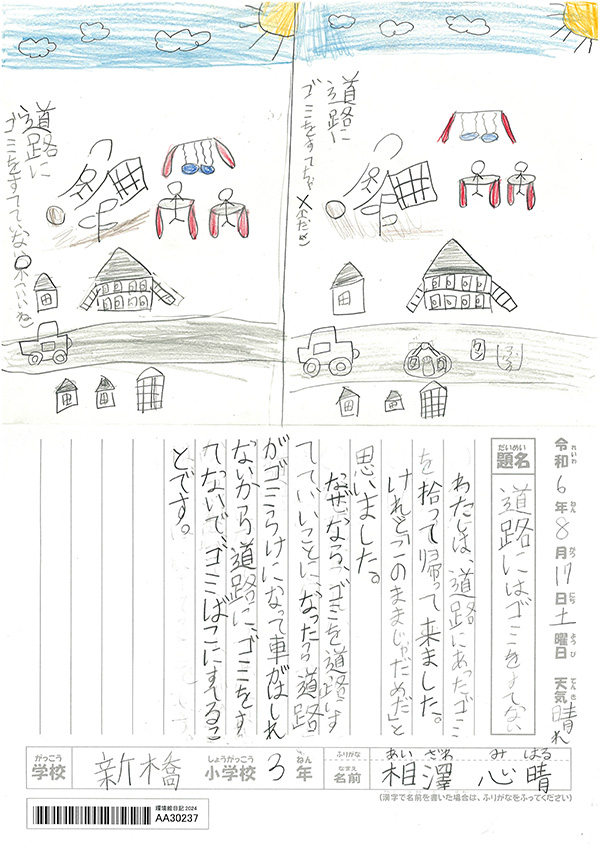 道路に
ゴミをすててない
○(いいね)
道路に
ゴミをすてちゃ
×(だめ)
令和6年8月17日土曜日 天気晴れ
れいわ ねん がつ にち ようび てんき
だいめい
題名 道路にはゴミをすてない
わたしは、道路にあったゴミ
を拾って帰って来ました。
けれど「このままじゃだめだ」と
思いました。
なぜなら、ゴミを道路にす
てていいことになったら道路
がゴミうらけになって車がはしれ
ないから道路に、ゴミをす
てないで、ゴミばこにすてるこ
とです。
がっこう しょうがっこう ねん ふりがな あい ざわ み はる
学校 新橋 小学校 3年 なまえ 名前 相澤 心晴
(漢字で名前を書いた場合は、ふりがなをふってください)
環境絵日記2024
AA30237